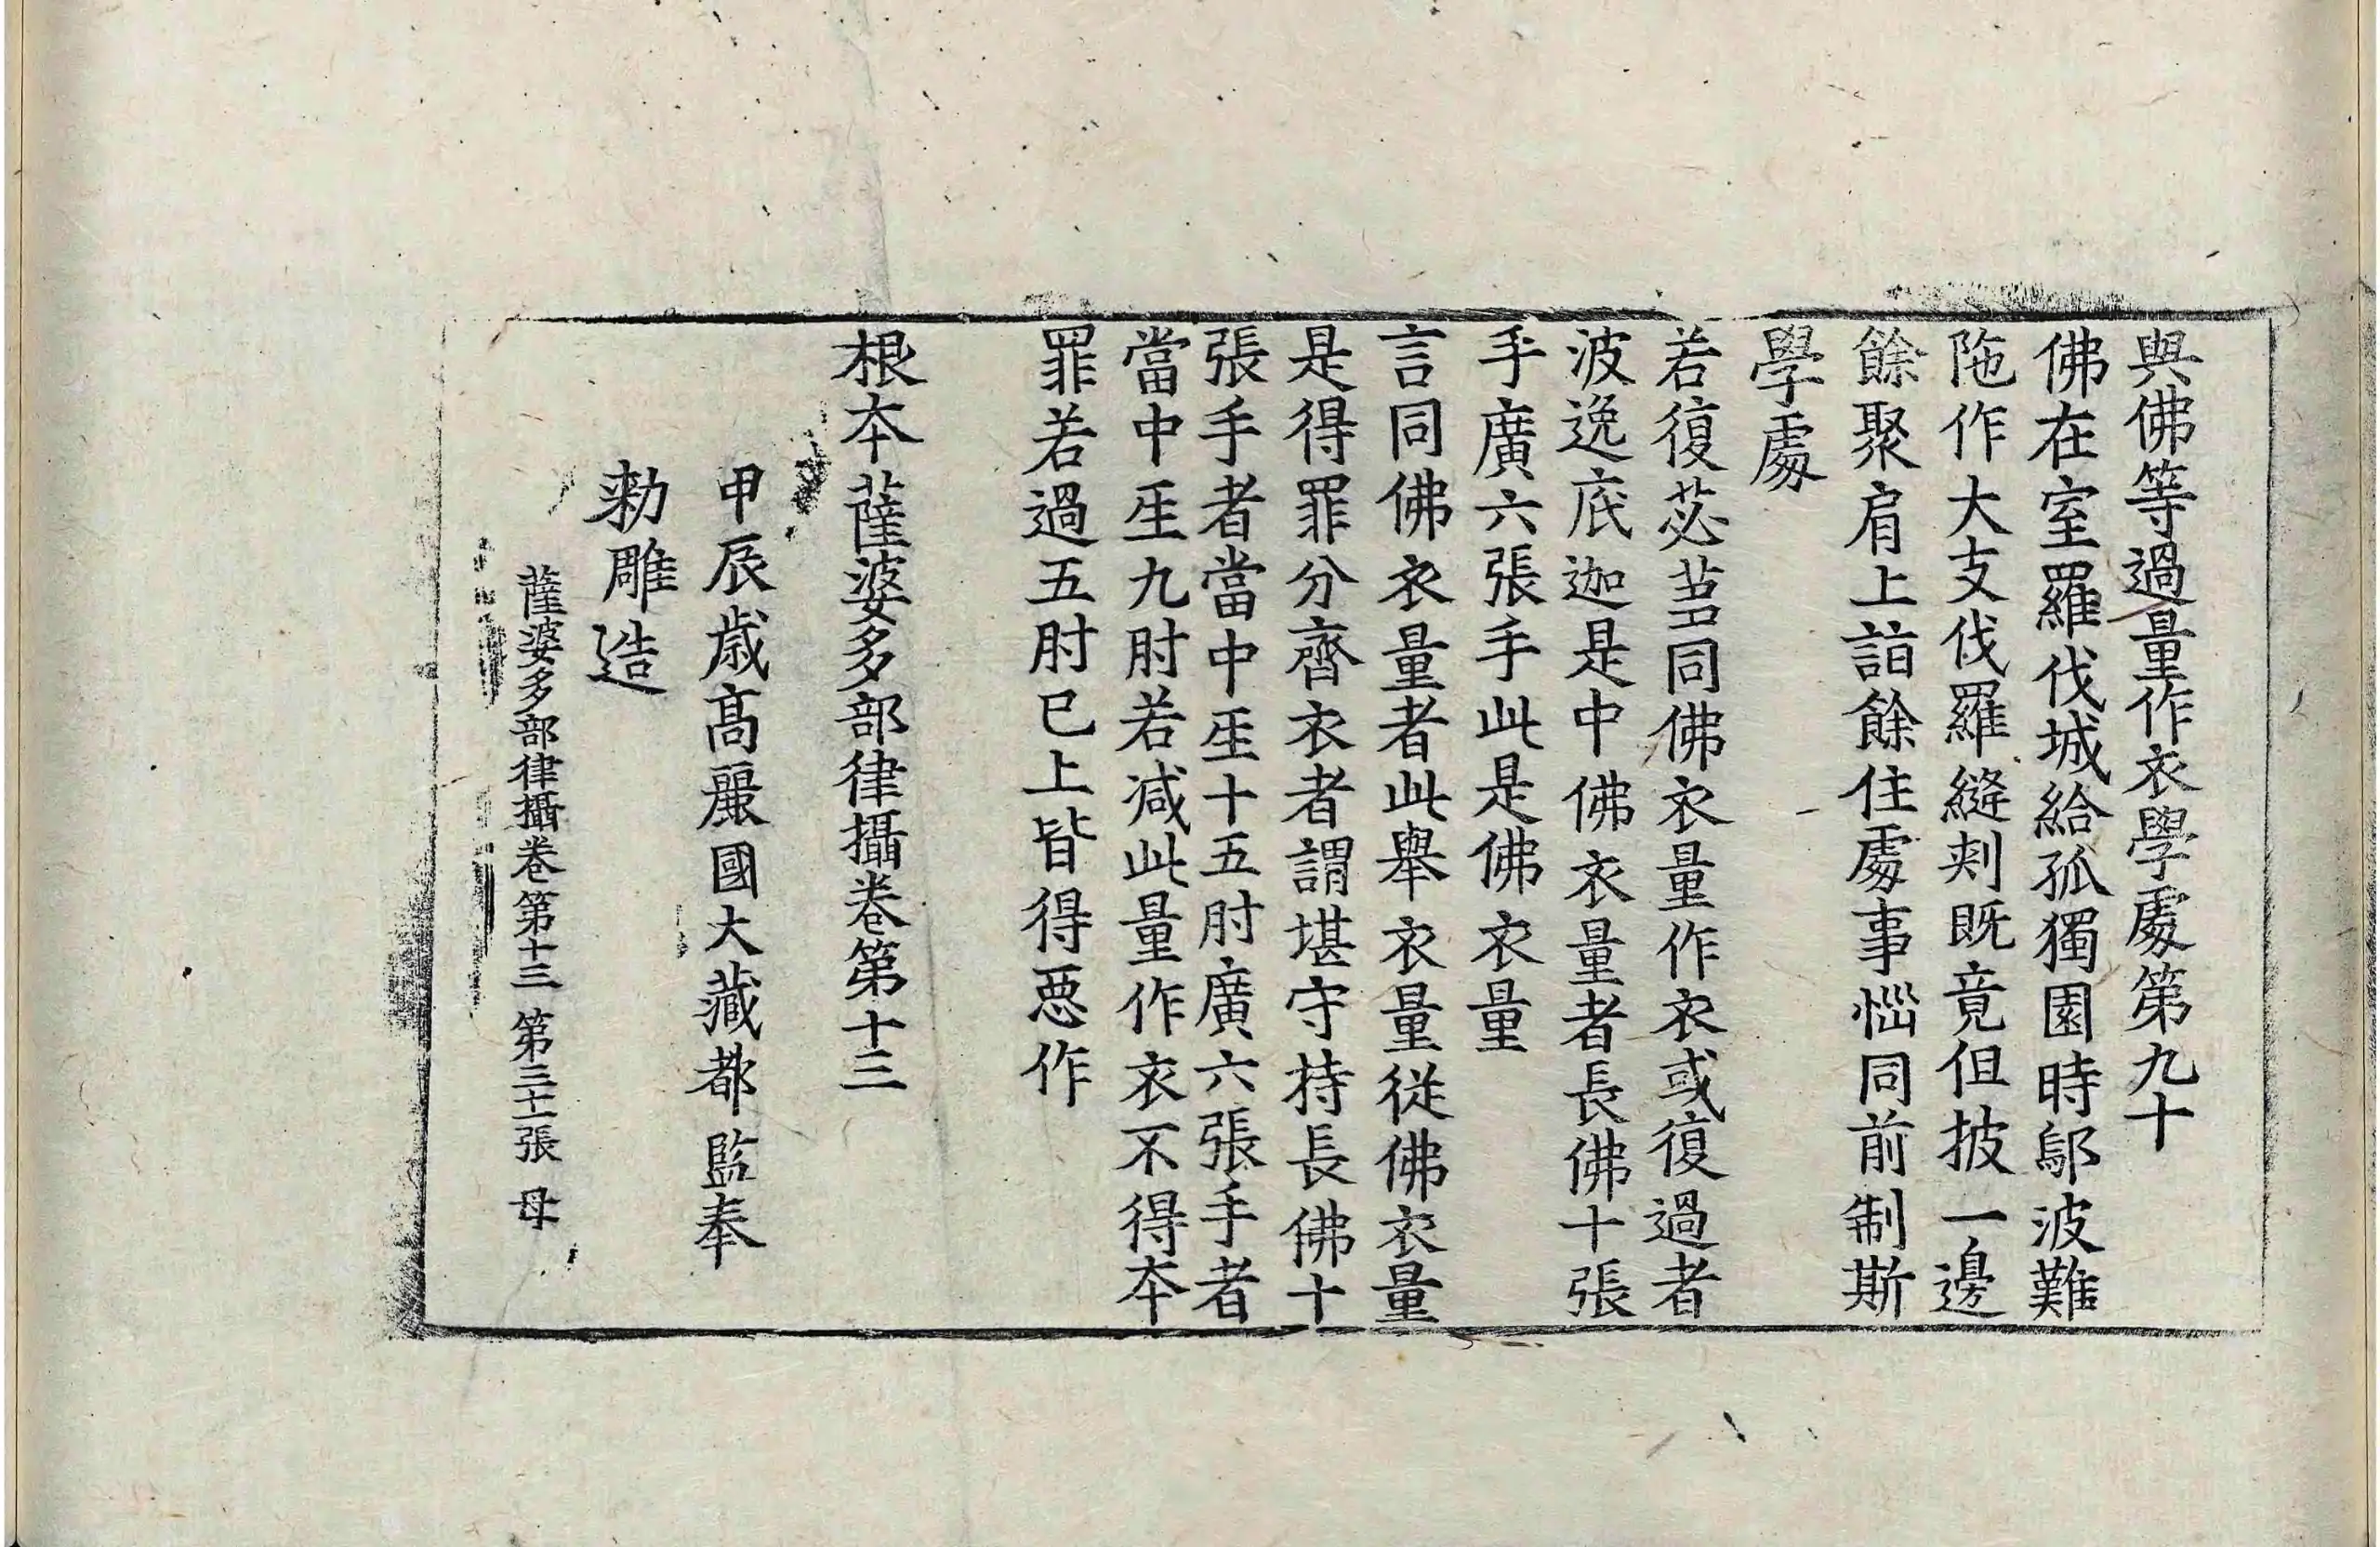 與佛等過量作衣學處第九十
佛在室羅伐城給孤獨園時鄔波難
陁作大支伐羅縫刾既竟但披一邊
餘聚肩上詣餘住處事惱同前制斯
學處
若復苾芻同佛衣量作衣或復過者
波逸底迦是中佛衣量者長佛十張
手廣六張手此是佛衣量
言同佛衣量者此舉衣量從佛衣量
是得罪分齊衣者謂堪守持長佛十
張手者當中𤯔十五肘廣六張手者
當中𤯔九肘若減此量作衣不得本
罪若過五肘已上皆得惡作
根本薩婆多部律攝卷第十三
甲辰歲高麗國大藏都監奉
勑雕造
薩婆多部律攝卷第十三 第三十二張 母